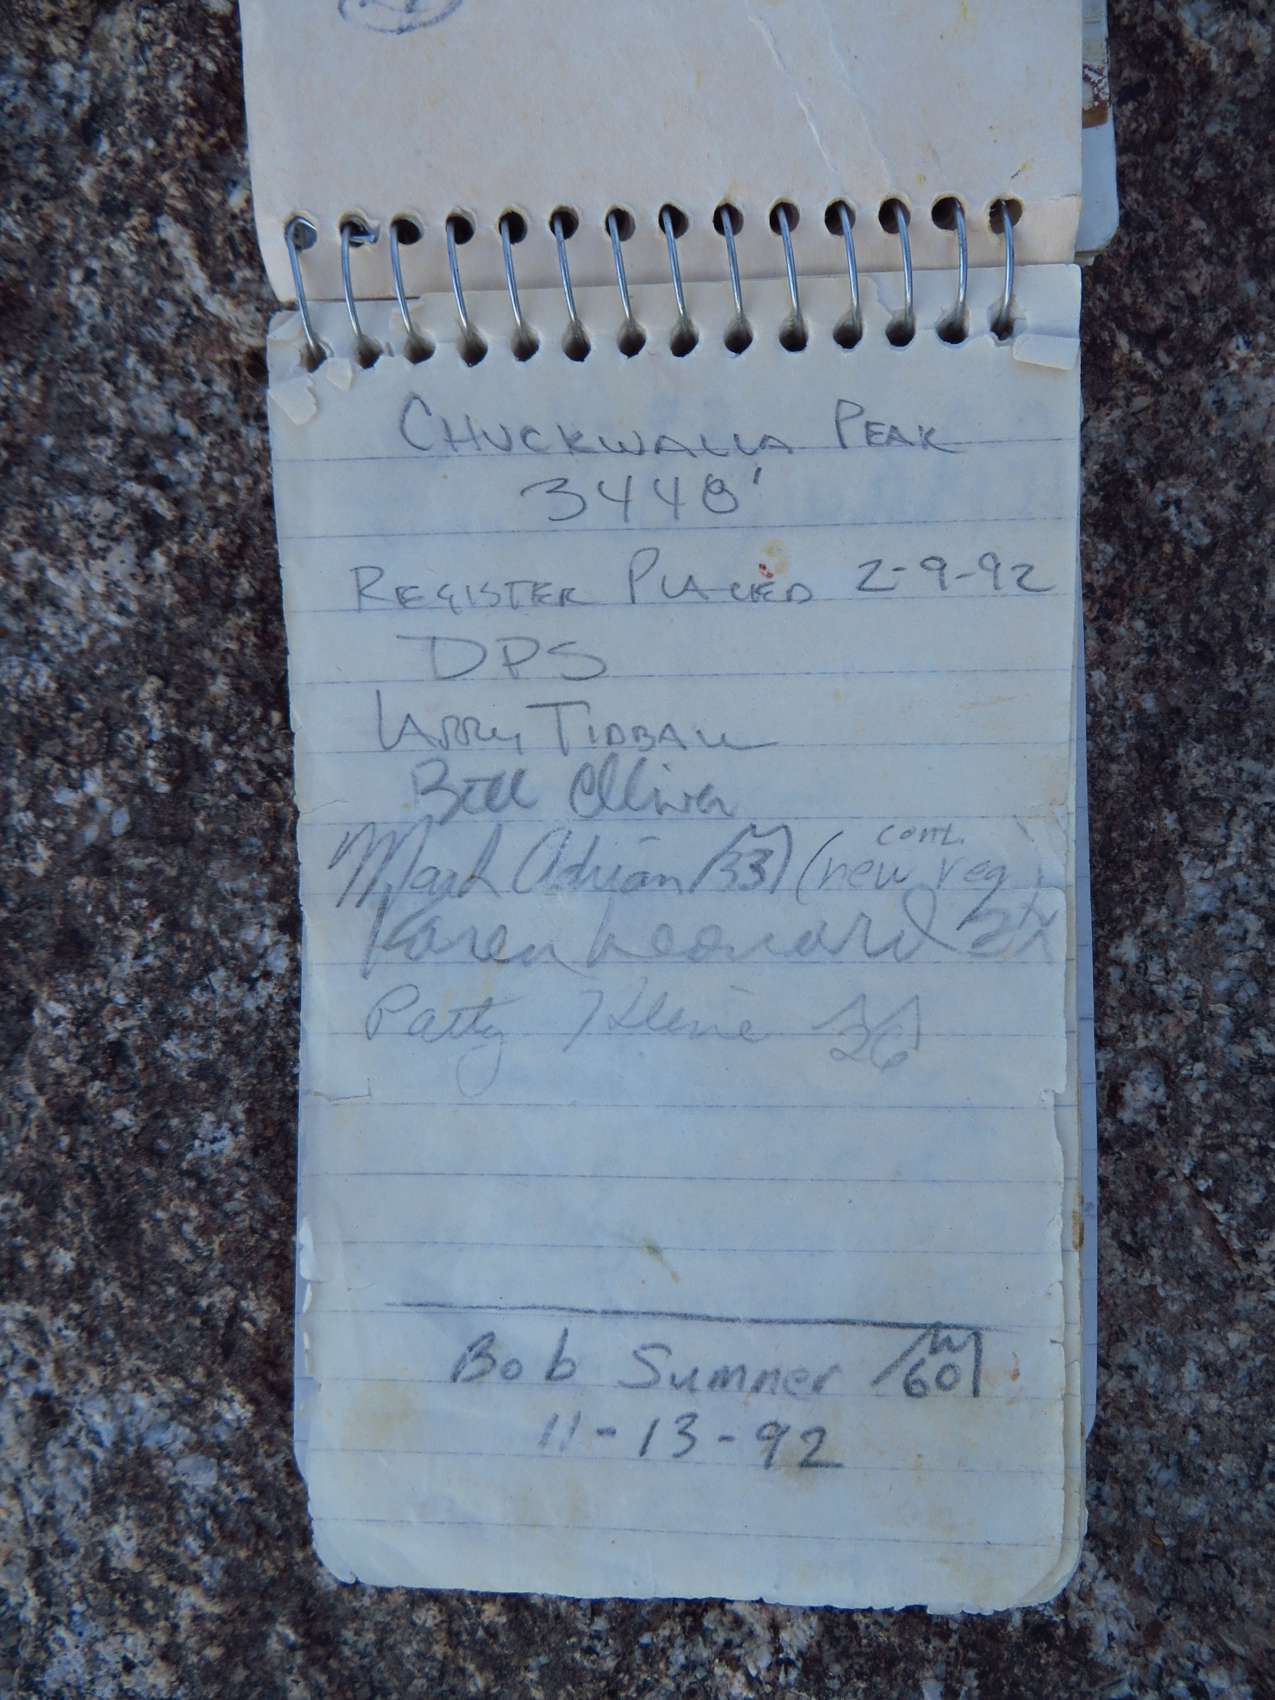 CHUCKWALLA PEAK
3448'
REGISTER PLACED 2-9-92
DPS
LARRY TIDBALL
Bill Oliver
Mark Adrian 33 (new reg. cont.)
Karen Leonard 2x
Patty Kline 26
Bob Sumner 60
11-13-92